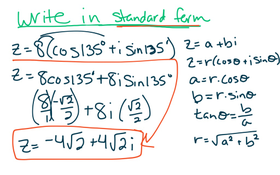 Write in standard form
z=8(cos135°+isin135°)
z=8cos135°+8isin135°
(8/1)(-√2/2)+8i(√2/2)
z=-4√2+4√2i
z=a+bi
z=r(cosθ+isinθ)
a=r·cosθ
b=r·sinθ
tanθ=b/a
r=√a²+b²